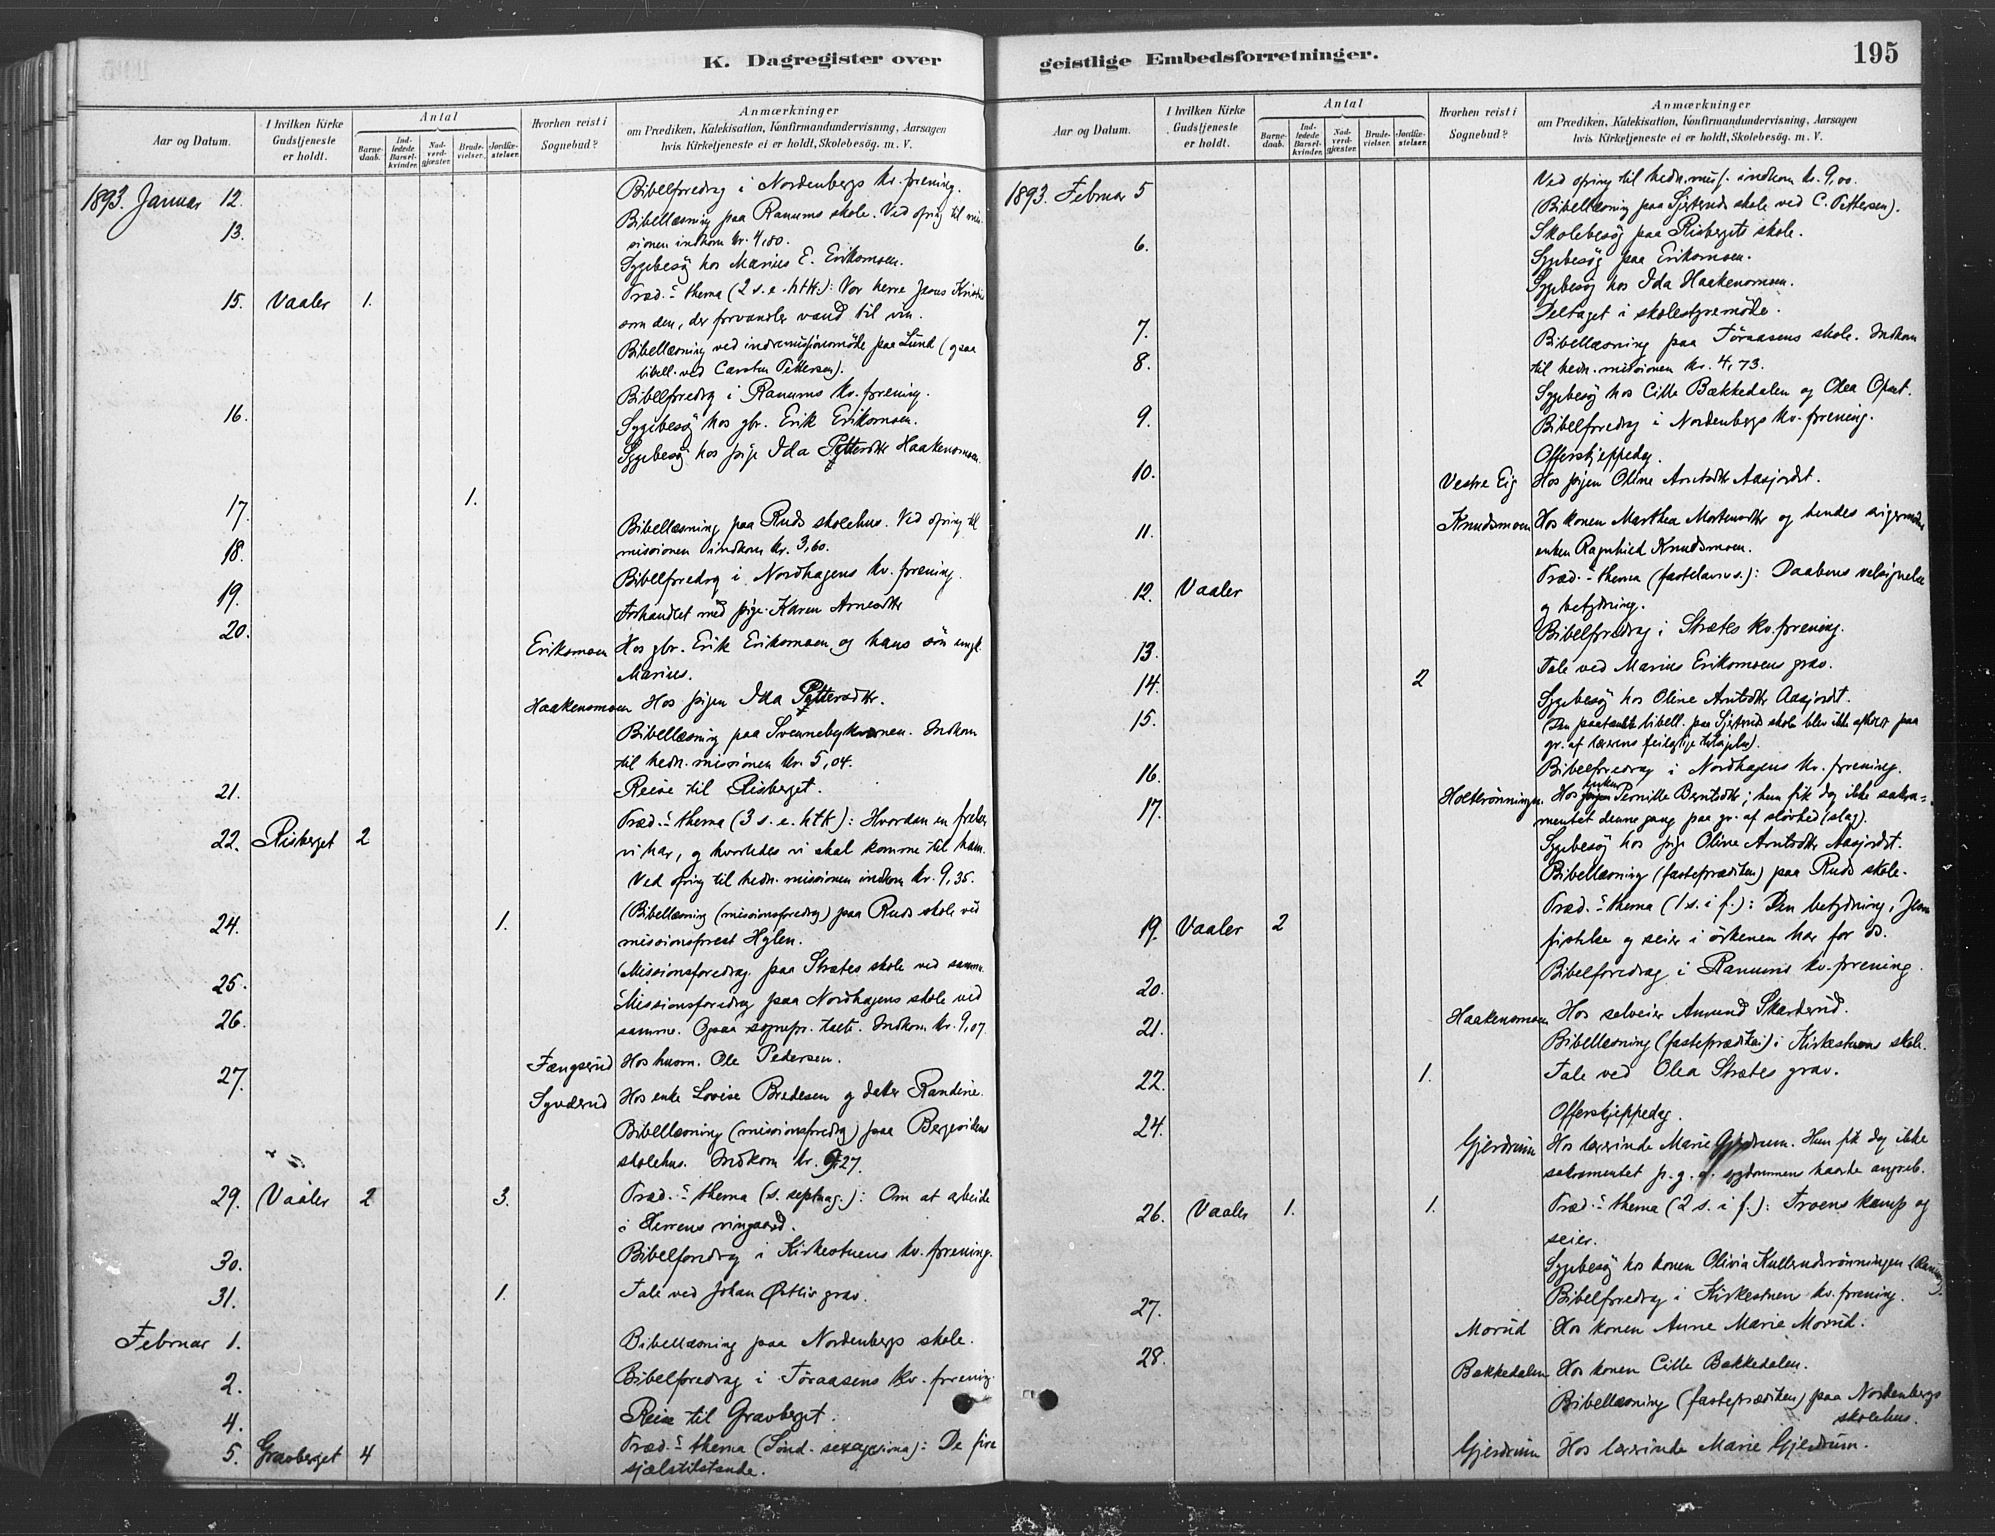 K. Dagregister over
Aar og Datum.
I hvilken Kirke Gudstjeneste er holdt.
Antal
Barne-daab.
Ind-ledede Barsel-kvinder.
Nad-verd-gjæster.
Brude-vielser.
Jordfæ-stelser.
Hvorhen reist i Sognebud?
Anmærkninger
om Prædiken, Katekisation, Konfirmandundervisning, Aarsagen
hvis Kirketjeneste ei er holdt, Skolebesøg. m. V.
1893. Januar 12. Bibelforedrag i Nordenbergs kv. forening.
13. Bibellæsning paa Ranums skole. Ved ofring til mis-
sionen indkom kr. 4,80.
Sygebesøg hos Marius E. Eriksmoen.
15. Vaaler 1. Præd.- thema (2 s. e. h.t.k.): Vor herre Jesus Kristus
som den, der forvandler vand til vin.
Bibellæsning ved indremissionsmøde paa Lund (ogsaa
bibell. ved Carsten Pettersen).
Bibelforedrag i Ranums kv. forening.
16. Sygebesøg hos gbr. Erik Eriksmoen.
Sygebesøg hos pige Ida Pettersdtr Haakensmoen.
17. 1.
Bibellæsning paa Ruds skolehus. Ved ofring til
18. missionen indkom kr. 3,60.
Bibelforedrag i Nordhagens kv. forening.
19. Forhandlet med pige Karen Arnesdtr
20.
Eriksmoen Hos gbr. Erik Eriksmoen og hans søn ungk.
Marius.
Haakensmoen Hos pigen Ida Pettersdtr.
Bibellæsning paa Svennebykvernen. Indkom
til hedn. missionen kr. 5,04.
21. Reise til Risberget.
22. Risberget 2 Præd.- thema (3 s. e. h.t.k): Hvordan en frelser
vi har, og hvorledes vi skal komme til ham.
Ved ofring til hedn. missionen indkom kr. 9,35.
24. 1. (Bibellæsning (missionsforedrag) paa Ruds skole ved
missionsprest Hylen.
25. (Missionsforedrag paa Strætes skole ved samme.
26. Missionsforedrag paa Nordhagens skole ved
samme. Ogsaa sognepr. talte. Indkom kr. 9,07.
27. Fængserud Hos husm. Ole Pedersen.
Syverud Hos enke Lovise Bredesen og datter Randine.
Bibellæsning (missionsforedrag) paa Bergevikens
skolehus. Indkom kr. 9,27.
29. Vaaler 2 3. Præd.- thema (s. septuag.): Om at arbeide
i Herrens vingaard.
30. Bibelforedrag i Kirkestuens kv. forening.
31. 1. Tale ved Johan Østlis grav.
Februar 1. Bibellæsning paa Nordenbergs skole.
2. Bibelforedrag i Toraasens kv. forening.
4. Reise til Gravberget.
5. Gravberget 4 Præd.- thema (Sønd. sexagesima): De fire
sjælstilstande.
geistlige Embedsforretninger.
195
Aar og Datum.
I hvilken Kirke Gudstjeneste er holdt.
Antal
Barne-daab.
Ind-ledede Barsel-kvinder.
Nad-verd-gjæster.
Brude-vielser.
Jordfæ-stelser.
Hvorhen reist i Sognebud?
Anmærkninger
om Prædiken, Katekisation, Konfirmandundervisning, Aarsagen
hvis Kirketjeneste ei er holdt, Skolebesøg. m. V.
1893. Februar 5 Ved ofring til hedn. miss. indkom kr. 9,00.
(Bibellæsning paa Sjeteruds skole ved C. Pettersen).
6. Skolebesøg paa Risbergets skole.
Sygebesøg paa Eriksmoen.
Sygebesøg hos Ida Haakensmoen.
Deltaget i skolestyremøde.
7. Bibellæsning paa Toraasens skole. Indkom
8. til hedn. missionen kr. 4,73.
Sygebesøg hos Cille Bækkedalen og Olea Opset.
9. Bibelforedrag i Nordenbergs kv. forening.
Offerskjeppedag.
10. Vestre Eig Hos pigen Oline Arntsdtr Aasjordet.
11. Knudsmoen Hos konen Marthea Mortensdtr og hendes svigermoder
enken Ragnhild Knudsmoen.
12. Vaaler Præd.- thema (fastelavns s.): Daabens velsignelse
og betydning.
Bibelforedrag i Strætes kv. forening.
13. Tale ved Marius Eriksmoens grav.
14. 2
Sygebesøg hos Oline Arntsdtr Aasjordet.
15. (Den paatænkte bibell. paa Sjeterud skole blev ikke afholdt paa
gr. af lærerens feilagtige).
16. Bibelforedrag i Nordhagens kv. forening.
17. Holterønningen Hos enken Pernille Berntsdtr; hun fik dog ikke sakra-
mentet denne gang paa gr. af sløvhed (slag).
Sygebesøg hos pige Oline Arntsdtr Aasjordet.
Bibellæsning (fasteprædiken) paa Ruds skole.
19. Vaaler 2 Præd.- thema (1 s. i f.): Den betydning, Jesu
fristelse og seier i ørkenen har for os.
20. Bibelforedrag i Ranums kv. forening.
21. Haakensmoen Hos selveier Amund Skarderud.
Bibellæsning (fasteprædiken) i Kirkestuens skole.
22. 1. Tale ved Olea Strætes grav.
24. Offerskjeppedag.
Gjerdrum Hos lærerinde Marie Gjerdrum. Hun fik dog ikke
sakramentet p. g. a. sygdommens haarde angreb.
26. Vaaler 1. 1. Præd.- thema (2 s. i f.): Troens kamp og
seier.
Sygebesøg hos konen Olivia Kullerudsrønningen (Ranum).
27. Bibelforedrag i Kirkestuen kv. forening.
Morud Hos konen Anne Marie Morud.
28. Bakkedalen Hos konen Cille Bakkedalen.
Bibellæsning (fasteprædiken) paa Nordenbergs
skolehus.
Gjerdrum Hos lærerinde Marie Gjerdrum.